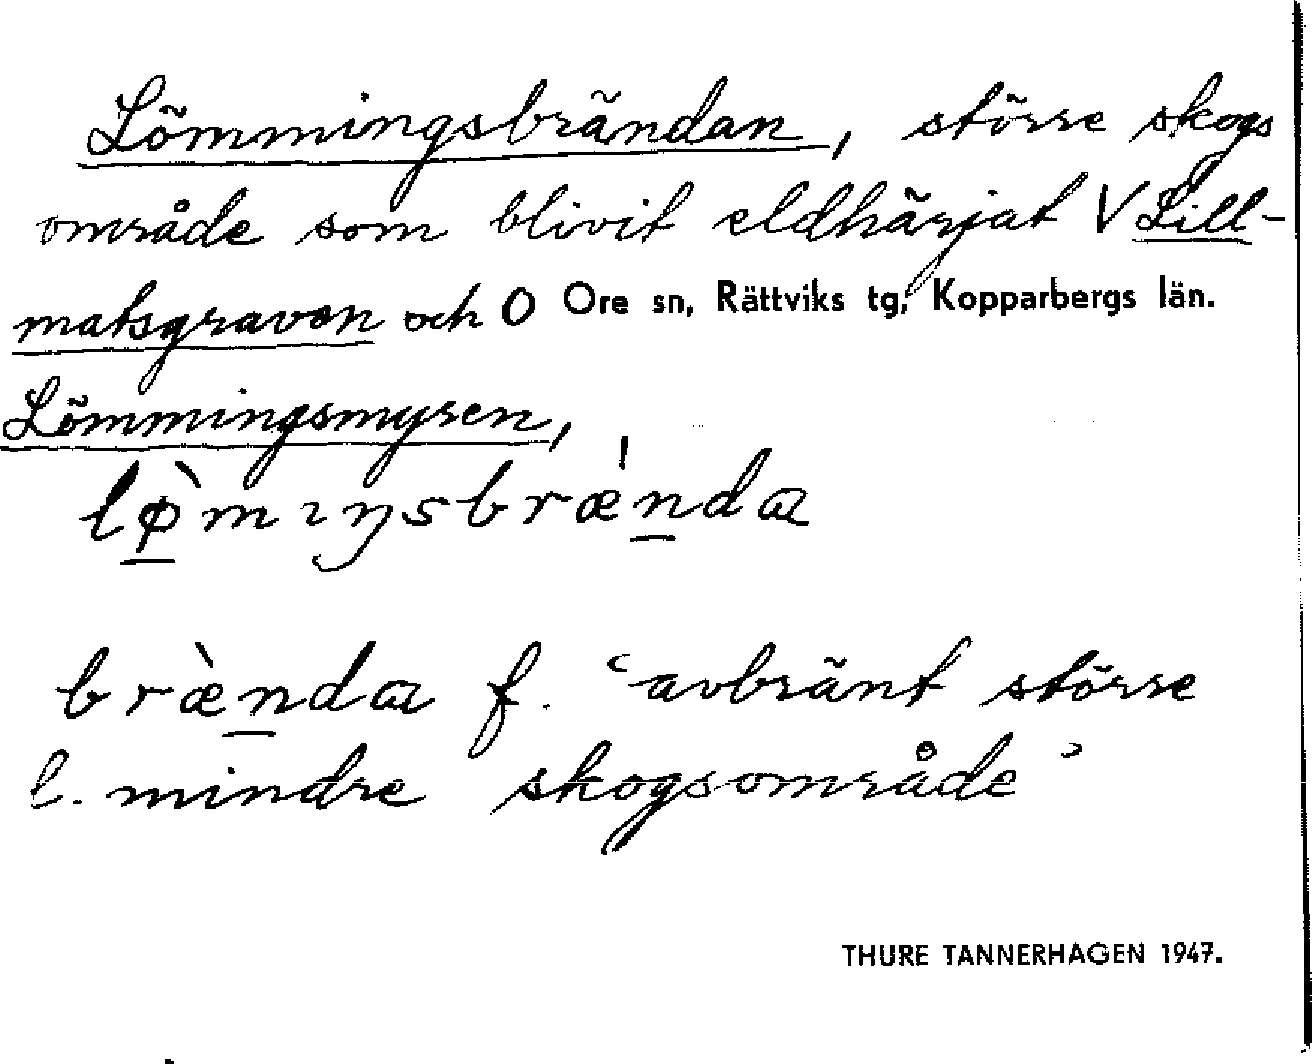 Lömmingsbrändan, större skogs
område som blivit eldhärjat V Lill-
matsgravan och O Ore sn, Rättviks tg, Kopparbergs län.
Lömmingsmyren,
lø̀mıŋsbræ̀nda
bræ̀nda f. ‘avbränt större
l. mindre skogsområde’
THURE TANNERHAGEN 1947.